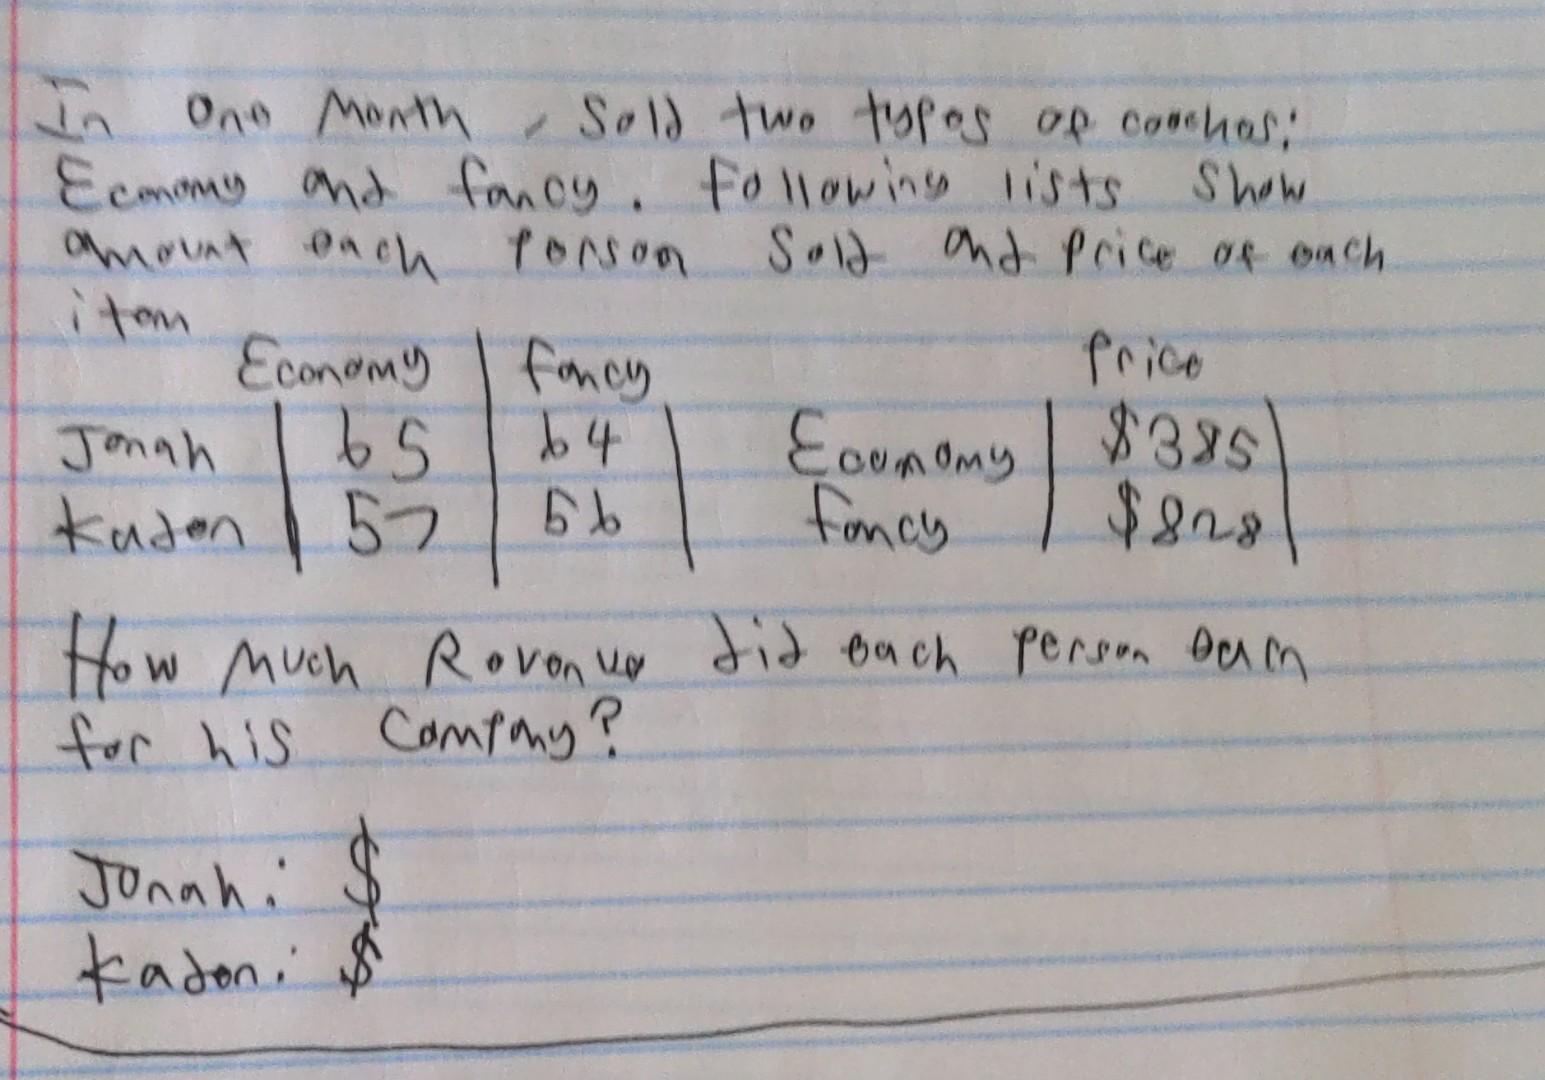 In One Month, Sold two types of couches:
Economy and fancy. Following lists Show
amount each person Sold and Price of each
item
Economy | Fancy Price
Jonah | 65 | 64 | Economy | $385 |
Kaden | 57 | 56 | Fancy | $828 |
How Much Revenue did each person earn
for his Company?
Jonah: $
Kaden: $